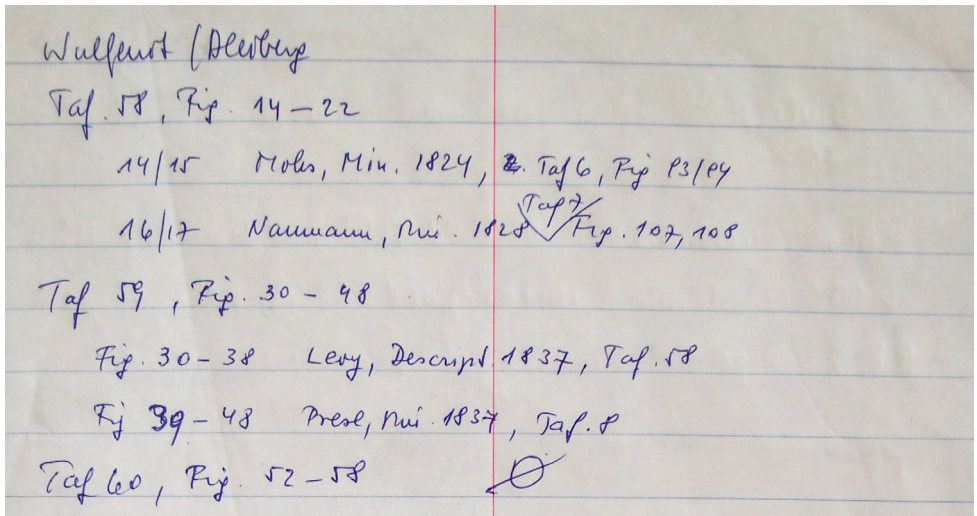 Wulfenit / Bleiberg
Taf. 58, Fig. 14 – 22
14/15 Mohs, Min. 1824, 2. Taf 6, Fig 93/94
16/17 Naumann, Min. 1828 Taf 7 Fig. 107, 108
Taf 59, Fig. 30 – 48
Fig. 30 – 38 Levy, Descript. 1837, Taf. 58
Fig 39 – 48 Presl, Min. 1837, Taf. 8
Taf 60, Fig. 52 – 58 Ø